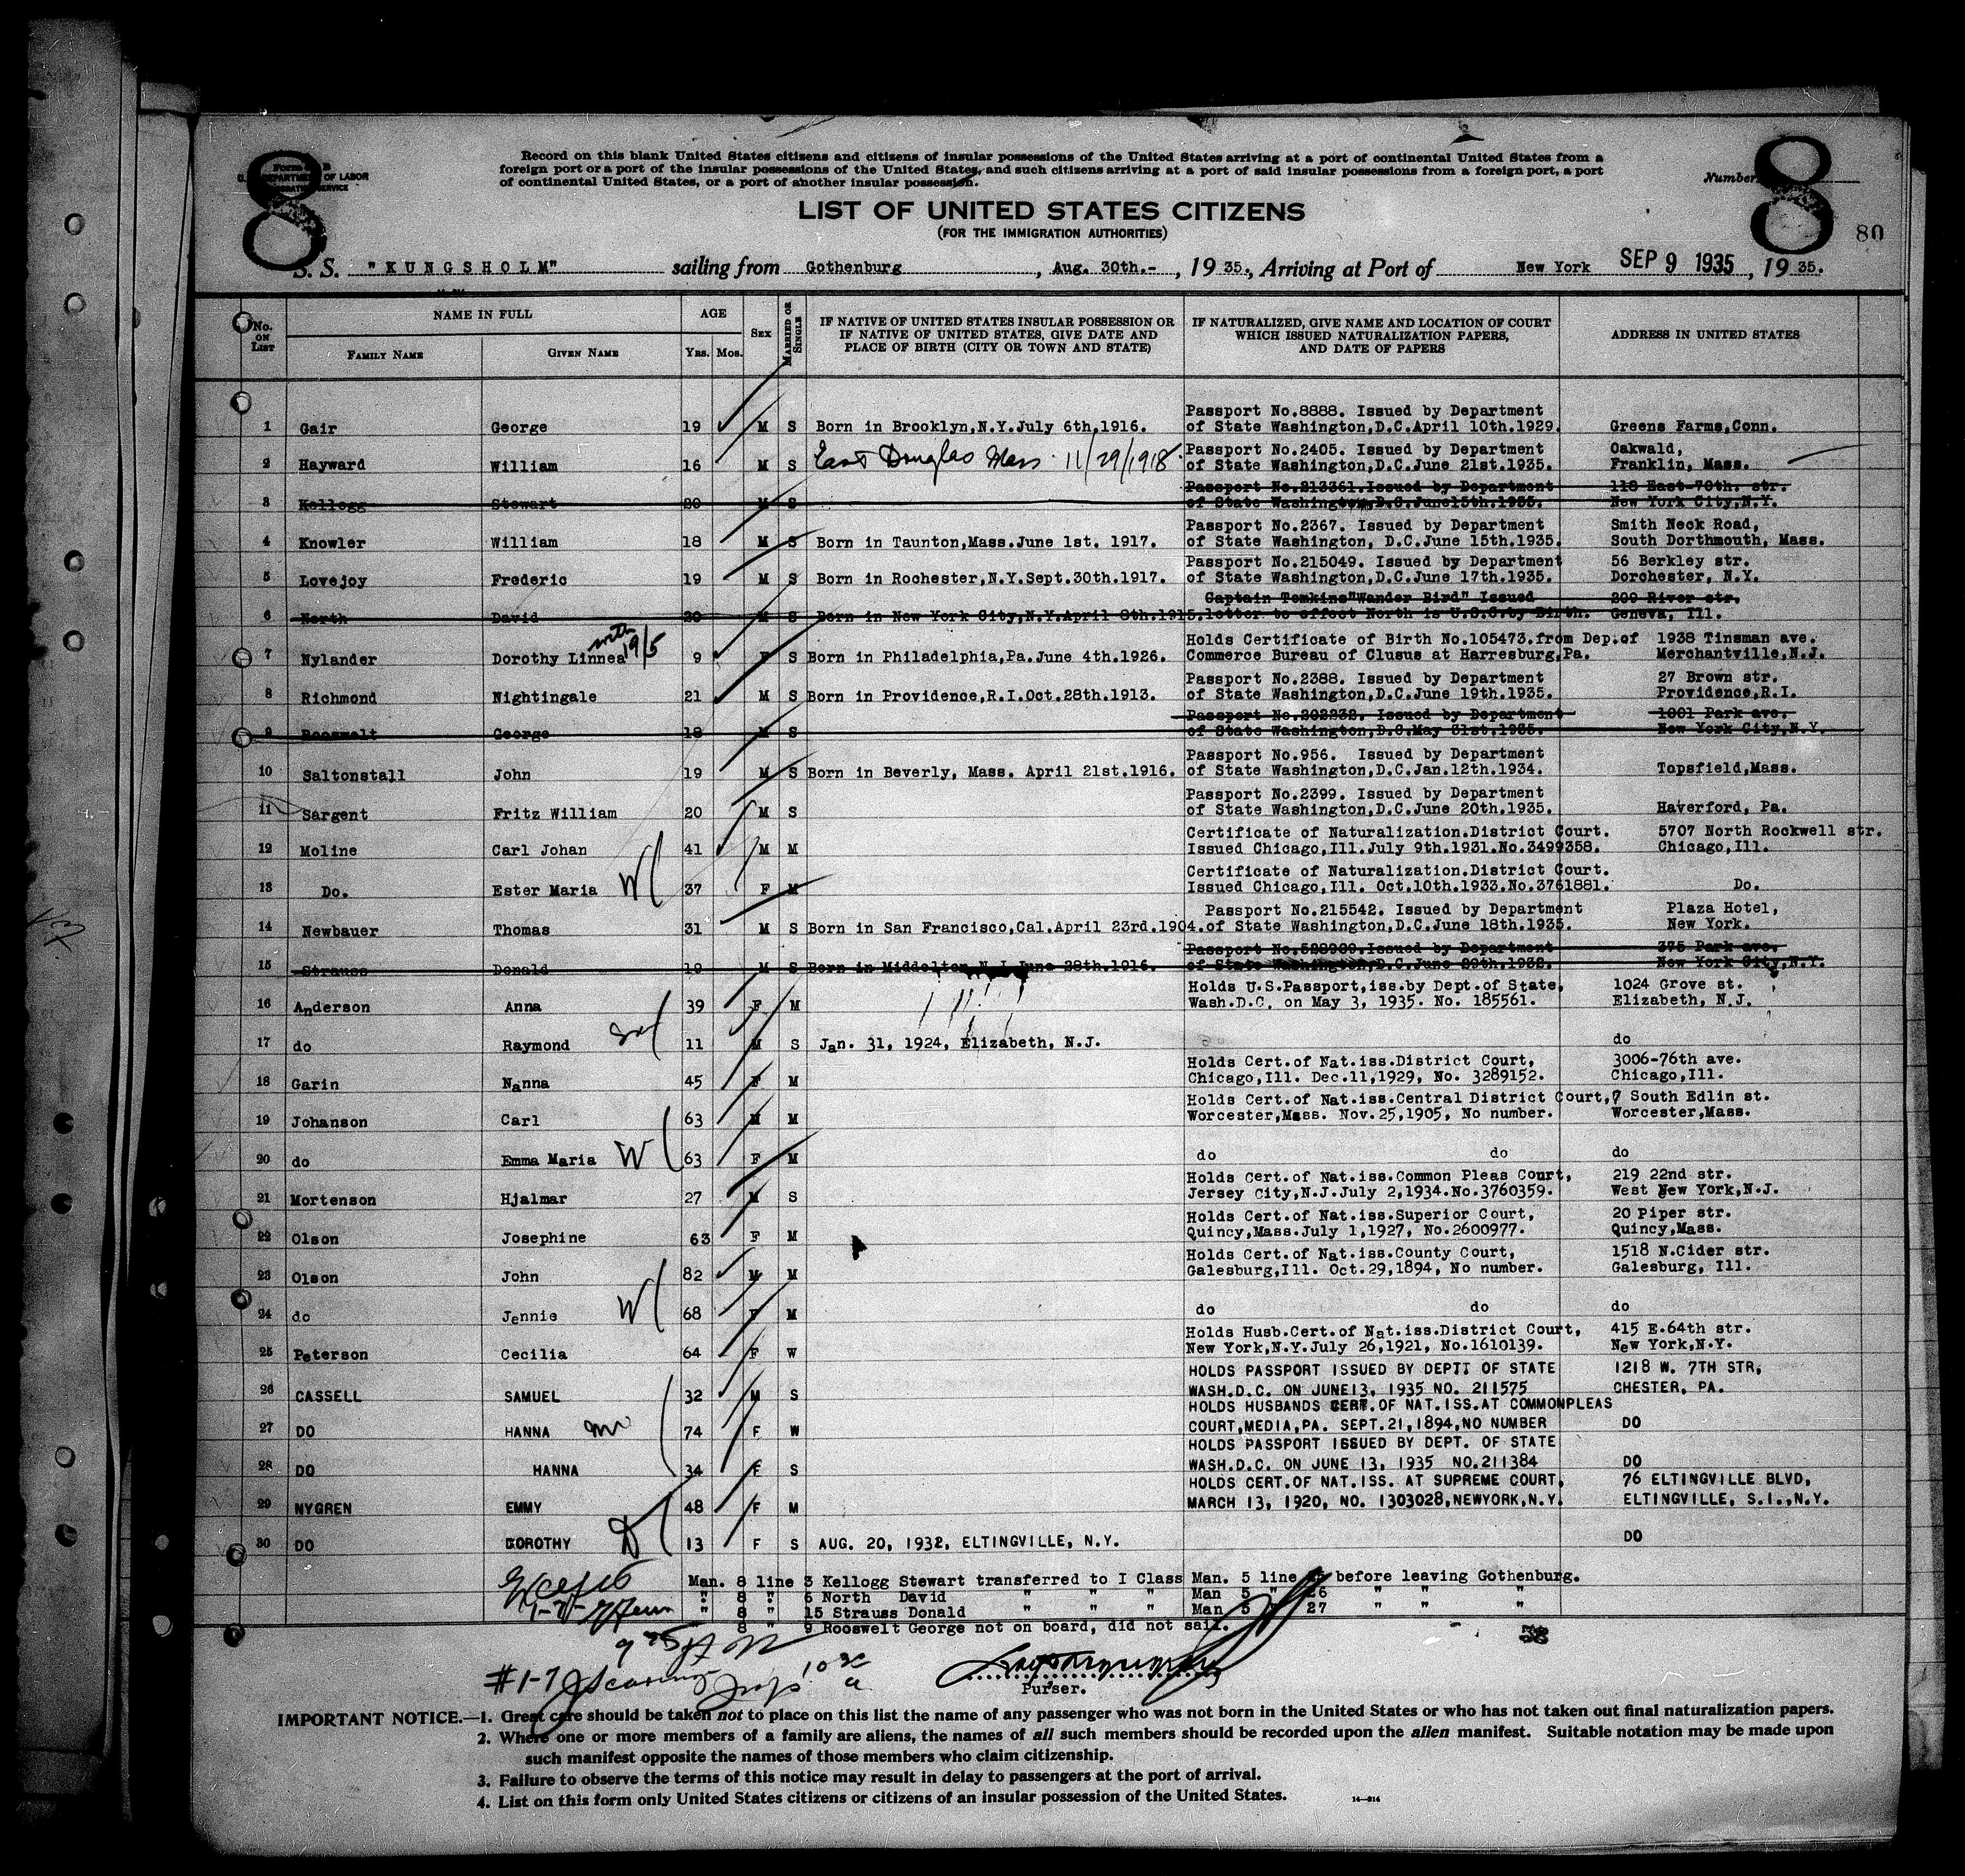 8
8
U. S. DEPARTMENT OF LABOR
Record on this blank United States citizens and citizens of insular possessions of the United States arriving at a port of continental United States from a
foreign port or a port of the insular possessions of the United States, and such citizens arriving at a port of said insular possessions from a foreign port, a port
of continental United States, or a port of another insular possession.
Number
LIST OF UNITED STATES CITIZENS
(FOR THE IMMIGRATION AUTHORITIES)
80
S. S. "KUNGSHOLM" sailing from Gothenburg, Aug. 30th.-, 19 35., Arriving at Port of New York SEP 9 1935, 19 35.
No. ON LIST
NAME IN FULL
FAMILY NAME
GIVEN NAME
AGE
YRS. MOS.
SEX
MARRIED OR SINGLE
IF NATIVE OF UNITED STATES INSULAR POSSESSION OR
IF NATIVE OF UNITED STATES, GIVE DATE AND
PLACE OF BIRTH (CITY OR TOWN AND STATE)
IF NATURALIZED, GIVE NAME AND LOCATION OF COURT
WHICH ISSUED NATURALIZATION PAPERS,
AND DATE OF PAPERS
ADDRESS IN UNITED STATES
Passport No.8888. Issued by Department
1 Gair George 19 M S Born in Brooklyn,N.Y.July 6th,1916. of State Washington,D.C.April 10th.1929. Greens Farms,Conn.
Passport No.2405. Issued by Department Oakwald,
2 Hayward William 16 M S East Douglas Mass. 11/29/1918 of State Washington,D.C.June 21st.1935. Franklin, Mass.
Passport No.213361.Issued by Department 118 East-70th. str.
3 Kellogg Stewart 20 M S of State Washington,D.C.June15th.1935. New York City,N.Y.
Passport No.2367. Issued by Department Smith Neck Road,
4 Knowler William 18 M S Born in Taunton,Mass.June 1st. 1917. of State Washington, D.C.June 15th.1935. South Dorthmouth, Mass.
Passport No.215049. Issued by Department 56 Berkley str.
5 Lovejoy Frederic 19 M S Born in Rochester,N.Y.Sept.30th.1917. of State Washington,D.C.June 17th.1935. Dorchester, N.Y.
Captain Tomkins"Wander Bird" Issued 200 River str.
6 North David 20 M S Born in New York City,N.Y.April 8th.1915.letter to effect North is U.S.C.by Birth. Geneva, Ill.
with 19/5
Holds Certificate of Birth No.105473.from Dep.of 1938 Tinsman ave.
7 Nylander Dorothy Linnea 9 F S Born in Philadelphia,Pa.June 4th.1926. Commerce Bureau of Clusus at Harresburg,Pa. Merchantville,N.J.
Passport No.2388. Issued by Department 27 Brown str.
8 Richmond Nightingale 21 M S Born in Providence,R.I.Oct.28th.1913. of State Washington,D.C.June 19th.1935. Providence,R.I.
Passport No.202232. Issued by Department 1001 Park ave.
9 Rooswelt George 18 M S of State Washington,D.C.May 31st.1935. New York City,N.Y.
Passport No.956. Issued by Department
10 Saltonstall John 19 M S Born in Beverly, Mass. April 21st.1916. of State Washington,D.C.Jan.12th.1934. Topsfield,Mass.
Passport No.2399. Issued by Department
11 Sargent Fritz William 20 M S of State Washington,D.C.June 20th.1935. Haverford, Pa.
Certificate of Naturalization.District Court. 5707 North Rockwell str.
12 Moline Carl Johan 41 M M Issued Chicago,Ill.July 9th.1931.No.3499358. Chicago,Ill.
Certificate of Naturalization.District Court.
13 Do. Ester Maria W 37 F M Issued Chicago,Ill. Oct.10th.1933.No.3761881. Do.
Passport No.215542. Issued by Department Plaza Hotel,
14 Newbauer Thomas 31 M S Born in San Francisco,Cal.April 23rd.1904.of State Washington,D.C.June 18th.1935. New York.
Passport No.528909.Issued by Department 375 Park ave.
15 Strauss Donald 19 M S Born in Middelton,N.J.June 28th.1916. of State Washington,D.C.June 29th.1932. New York City,N.Y.
Holds U.S.Passport,iss.by Dept.of State, 1024 Grove st.
16 Anderson Anna 39 F M Wash.D.C. on May 3, 1935. No. 185561. Elizabeth, N.J.
17 do Raymond 11 M S Jan. 31, 1924, Elizabeth, N.J. do
Holds Cert.of Nat.iss.District Court, 3006-76th ave.
18 Garin Nanna 45 F M Chicago,Ill. Dec.11,1929, No. 3289152. Chicago,Ill.
Holds Cert.of Nat.iss.Central District Court,7 South Edlin st.
19 Johanson Carl 63 M M Worcester,Mass. Nov.25,1905, No number. Worcester,Mass.
20 do Emma Maria W 63 F M do do do
Holds Cert.of Nat.iss.Common Pleas Court, 219 22nd str.
21 Mortenson Hjalmar 27 M S Jersey City,N.J.July 2,1934.No.3760359. West New York,N.J.
Holds Cert.of Nat.iss.Superior Court, 20 Piper str.
22 Olson Josephine 63 F M Quincy,Mass.July 1,1927, No.2600977. Quincy,Mass.
Holds Cert.of Nat.iss.County Court, 1518 N.Cider str.
23 Olson John 82 M M Galesburg,Ill. Oct.29,1894, No number. Galesburg, Ill.
24 do Jennie W 68 F M do do do
Holds Husb.Cert.of Nat.iss.District Court, 415 E.64th str.
25 Peterson Cecilia 64 F W New York,N.Y.July 26,1921, No.1610139. New York,N.Y.
HOLDS PASSPORT ISSUED BY DEPTT OF STATE 1218 W. 7TH STR,
26 CASSELL SAMUEL 32 M S WASH.D.C. ON JUNE13, 1935 NO. 211575 CHESTER, PA.
HOLDS HUSBANDS CERT.OF NAT.ISS.AT COMMONPLEAS
27 DO HANNA 74 F W COURT,MEDIA,PA. SEPT.21,1894,NO NUMBER DO
HOLDS PASSPORT ISSUED BY DEPT. OF STATE
28 DO HANNA 34 F S WASH.D.C. ON JUNE 13, 1935 NO.211384 DO
HOLDS CERT.OF NAT.ISS. AT SUPREME COURT, 76 ELTINGVILLE BLVD,
29 NYGREN EMMY 48 F M MARCH 13, 1920, NO. 1303028,NEWYORK,N.Y. ELTINGVILLE, S.I.,N.Y.
30 DO DOROTHY D 13 F S AUG. 20, 1932, ELTINGVILLE, N.Y. DO
Man. 8 line 3 Kellogg Stewart transferred to I Class Man. 5 line before leaving Gothenburg.
" 8 " 6 North David " " " Man 5 " 26 " " "
" 8 " 15 Strauss Donald " " " Man 5 " 27 " " "
8 9 Rooswelt George not on board, did not sail.
#1-7
Purser.
IMPORTANT NOTICE.—1. Great care should be taken not to place on this list the name of any passenger who was not born in the United States or who has not taken out final naturalization papers.
2. Where one or more members of a family are aliens, the names of all such members should be recorded upon the alien manifest. Suitable notation may be made upon
such manifest opposite the names of those members who claim citizenship.
3. Failure to observe the terms of this notice may result in delay to passengers at the port of arrival.
4. List on this form only United States citizens or citizens of an insular possession of the United States.
14—214